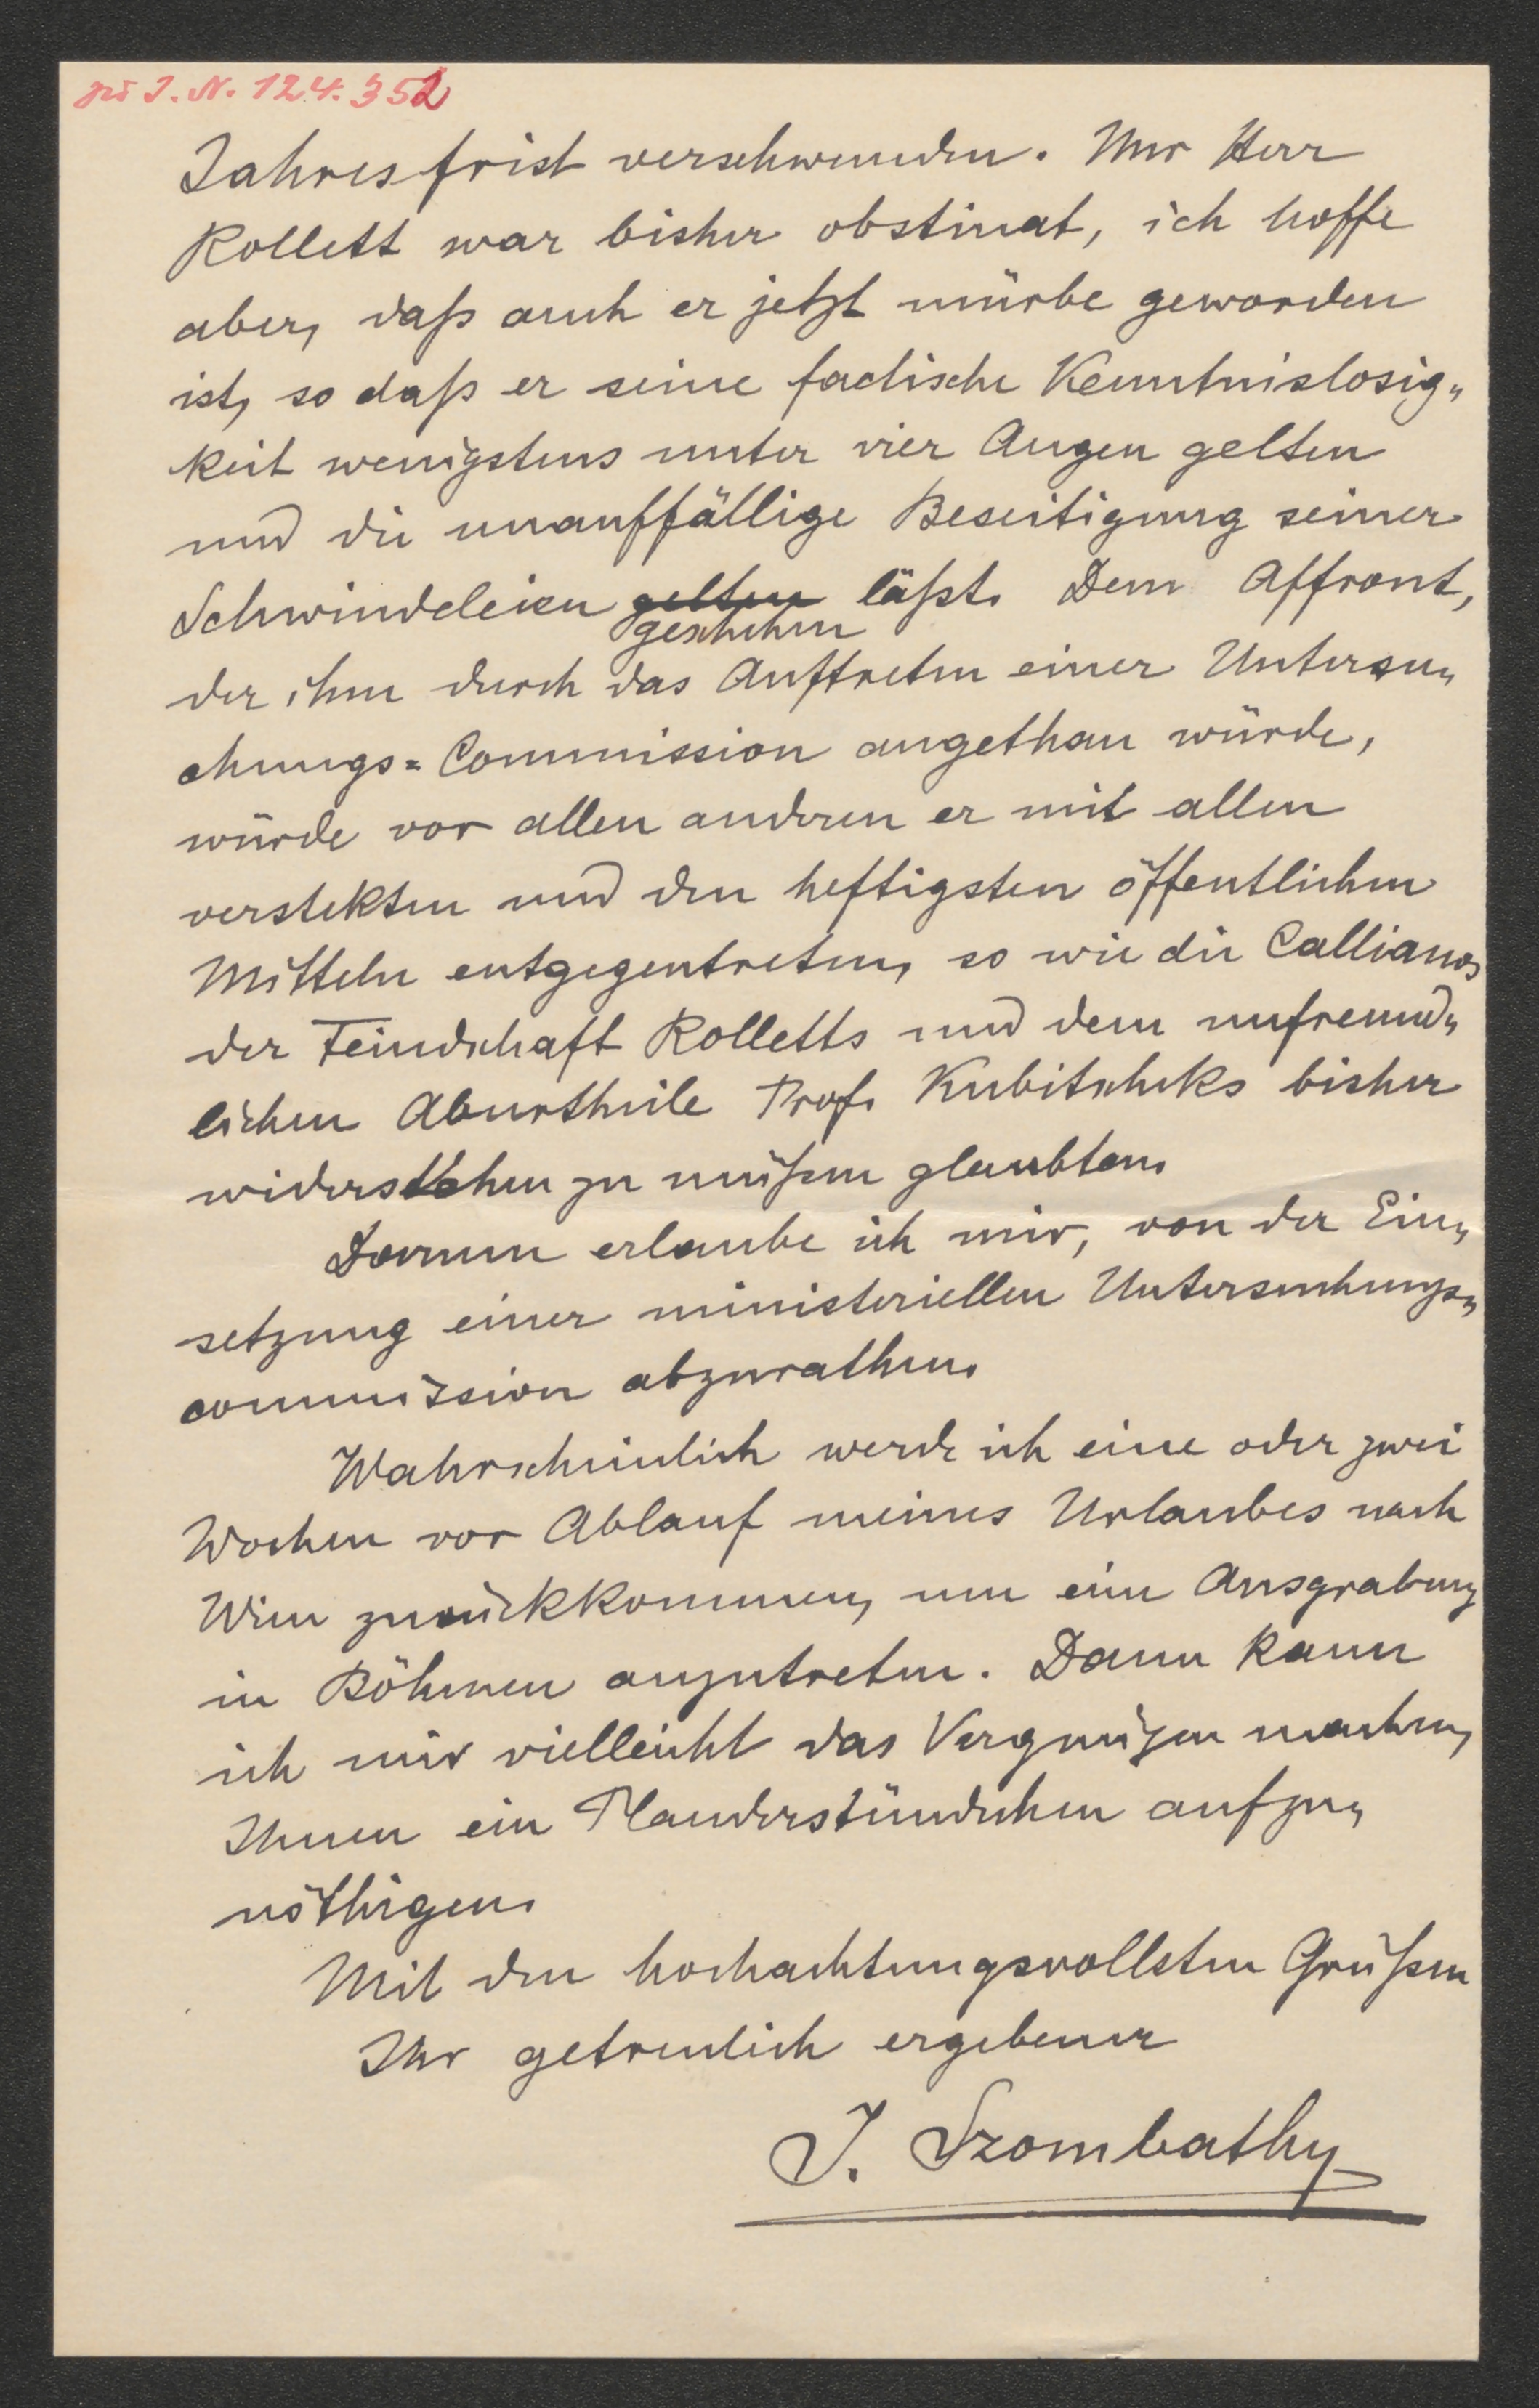 zu I. N. 124.352
Jahresfrist verschwunden. Nur Herr
Rollett war bisher obstinat, ich hoffe
aber, daß auch er jetzt mürbe geworden
ist, so daß er seine factische Kenntnislosig„
keit wenigstens unter vier Augen gelten
und die unauffällige Beseitigung seiner
Schwindeleien gelten läßt. Dem Affront,
geschehen
der ihm durch das Auftreten einer Untersu„
chungs=Commission angethan würde,
würde vor allen anderen er mit allen
verstekten und den heftigsten öffentlichen
Mitteln entgegentreten, so wie die Callianos
der Feindschaft Rolletts und dem unfreund„
lichen Aburtheile Prof. Kubitscheks bisher
widerstehen zu müßen glaubten.
Darum erlaube ich mir, von der Ein„
setzung einer ministeriellen Untersuchungs„
commission abzurathen.
Wahrscheinlich werde ich eine oder zwei
Wochen vor Ablauf meines Urlaubes nach
Wien zurückkommen, um eine Ausgrabung
in Böhmen anzutreten. Dann kann
ich mir vielleicht das Vergnügen machen,
Ihnen ein Plauderstündchen aufzu„
nöthigen.
Mit den hochachtungsvollsten Grüßen
Ihr getreulich ergebener
J. Szombathy